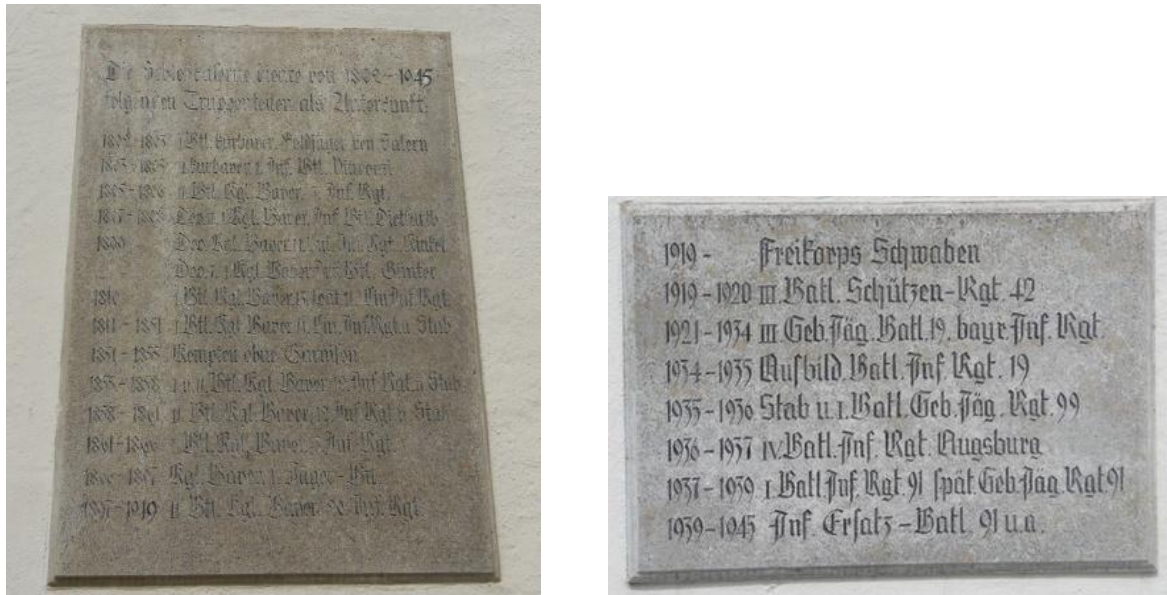 Die Schloßkaserne diente von 1802-1945
folgenden Truppenteilen als Unterkunft:
1802-1803 I. Btl. Feldjäger von Salern
1803-1805 Inf. Btl.
1805-1806 II. Btl. Kgl. Bayer. Inf. Rgt.
1807-1808 Dep. Kgl. Bayer. Inf. Btl.
1809 Dep. Kgl. Bayer. Inf. Rgt. Kinkel
Dep. Kgl. Bayer. Btl. Günter
1810 I. Btl. Kgl. Bayer. Lin. Inf. Rgt.
1811-1851 I. Btl. Kgl. Bayer. 11. Lin. Inf. Rgt. u. Stab
1851-1855 Kempten ohne Garnison
1855-1858 I. u. II. Btl. Kgl. Bayer. 12. Inf. Rgt. u. Stab
1858-1861 II. Btl. Kgl. Bayer. 12. Inf. Rgt. u. Stab
1861-1866 Btl. Kgl. Bayer. Inf. Rgt.
Kgl. Bayer. 1. Jäger-Btl.
1897-1919 II. Btl. Kgl. Bayer. 20. Inf. Rgt.
1919- Freikorps Schwaben
1919-1920 III. Batl. Schützen-Rgt. 42
1921-1934 III. Geb. Jäg. Batl. 19. bayr. Inf. Rgt.
1934-1935 Ausbild. Batl. Inf. Rgt. 19
1935-1936 Stab u. I. Batl. Geb. Jäg. Rgt. 99
1936-1937 IV. Batl. Inf. Rgt. Augsburg
1937-1939 I. Batl. Inf. Rgt. 91 spät. Geb. Jäg. Rgt. 91
1939-1945 Inf. Ersatz-Batl. 91 u.a.